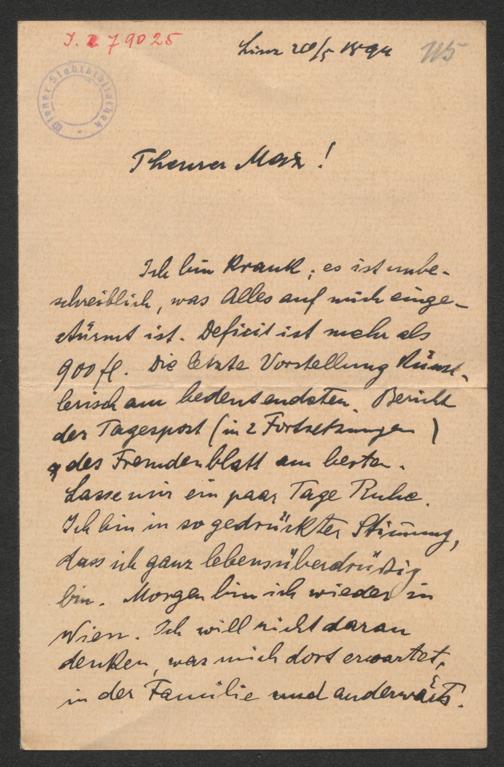 J. 79025
Linz 20/5 1894 115
Wiener Stadtbibliothek
Theurer Max!
Ich bin Krank; es ist unbe-
schreiblich, was Alles auf mich einge-
stürmt ist. Deficit ist mehr als
900 fl. Die letzte Vorstellung Künst-
lerisch am bedeutendsten. Bericht
der Tagespost (in 2 Fortsetzungen)
des Fremdenblatt am besten.
Lasse mir ein paar Tage Ruhe.
Ich bin in so gedrückter Stimung,
dass ich ganz lebensüberdrüßig
bin. Morgen bin ich wieder in
Wien. Ich will nicht daran
denken, was mich dort erwartet,
in der Familie und anderwärts.